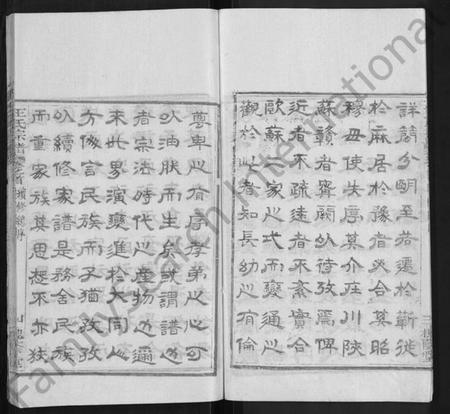 詳闕分明至若遷於蘄徙
於麻居於豫者必合其昭
穆毋使失序其介在川陝
蘇贛者寧闕以待孜焉俾
近者不疏遠者不紊實合
歐蘇二家之式而變通之
觀於此者知長幼之有倫
尊卑之有序孝弟之心可
以油肰而生矣或謂譜迺
者宗法時代之產物迺邇
來世界演變進於大同之
方佽言民族而子猶孜孜
以續修家譜是務舍民族
而重家族其思想不亦狹
王氏宗譜 卷首 續修譜序
FamilySearch International